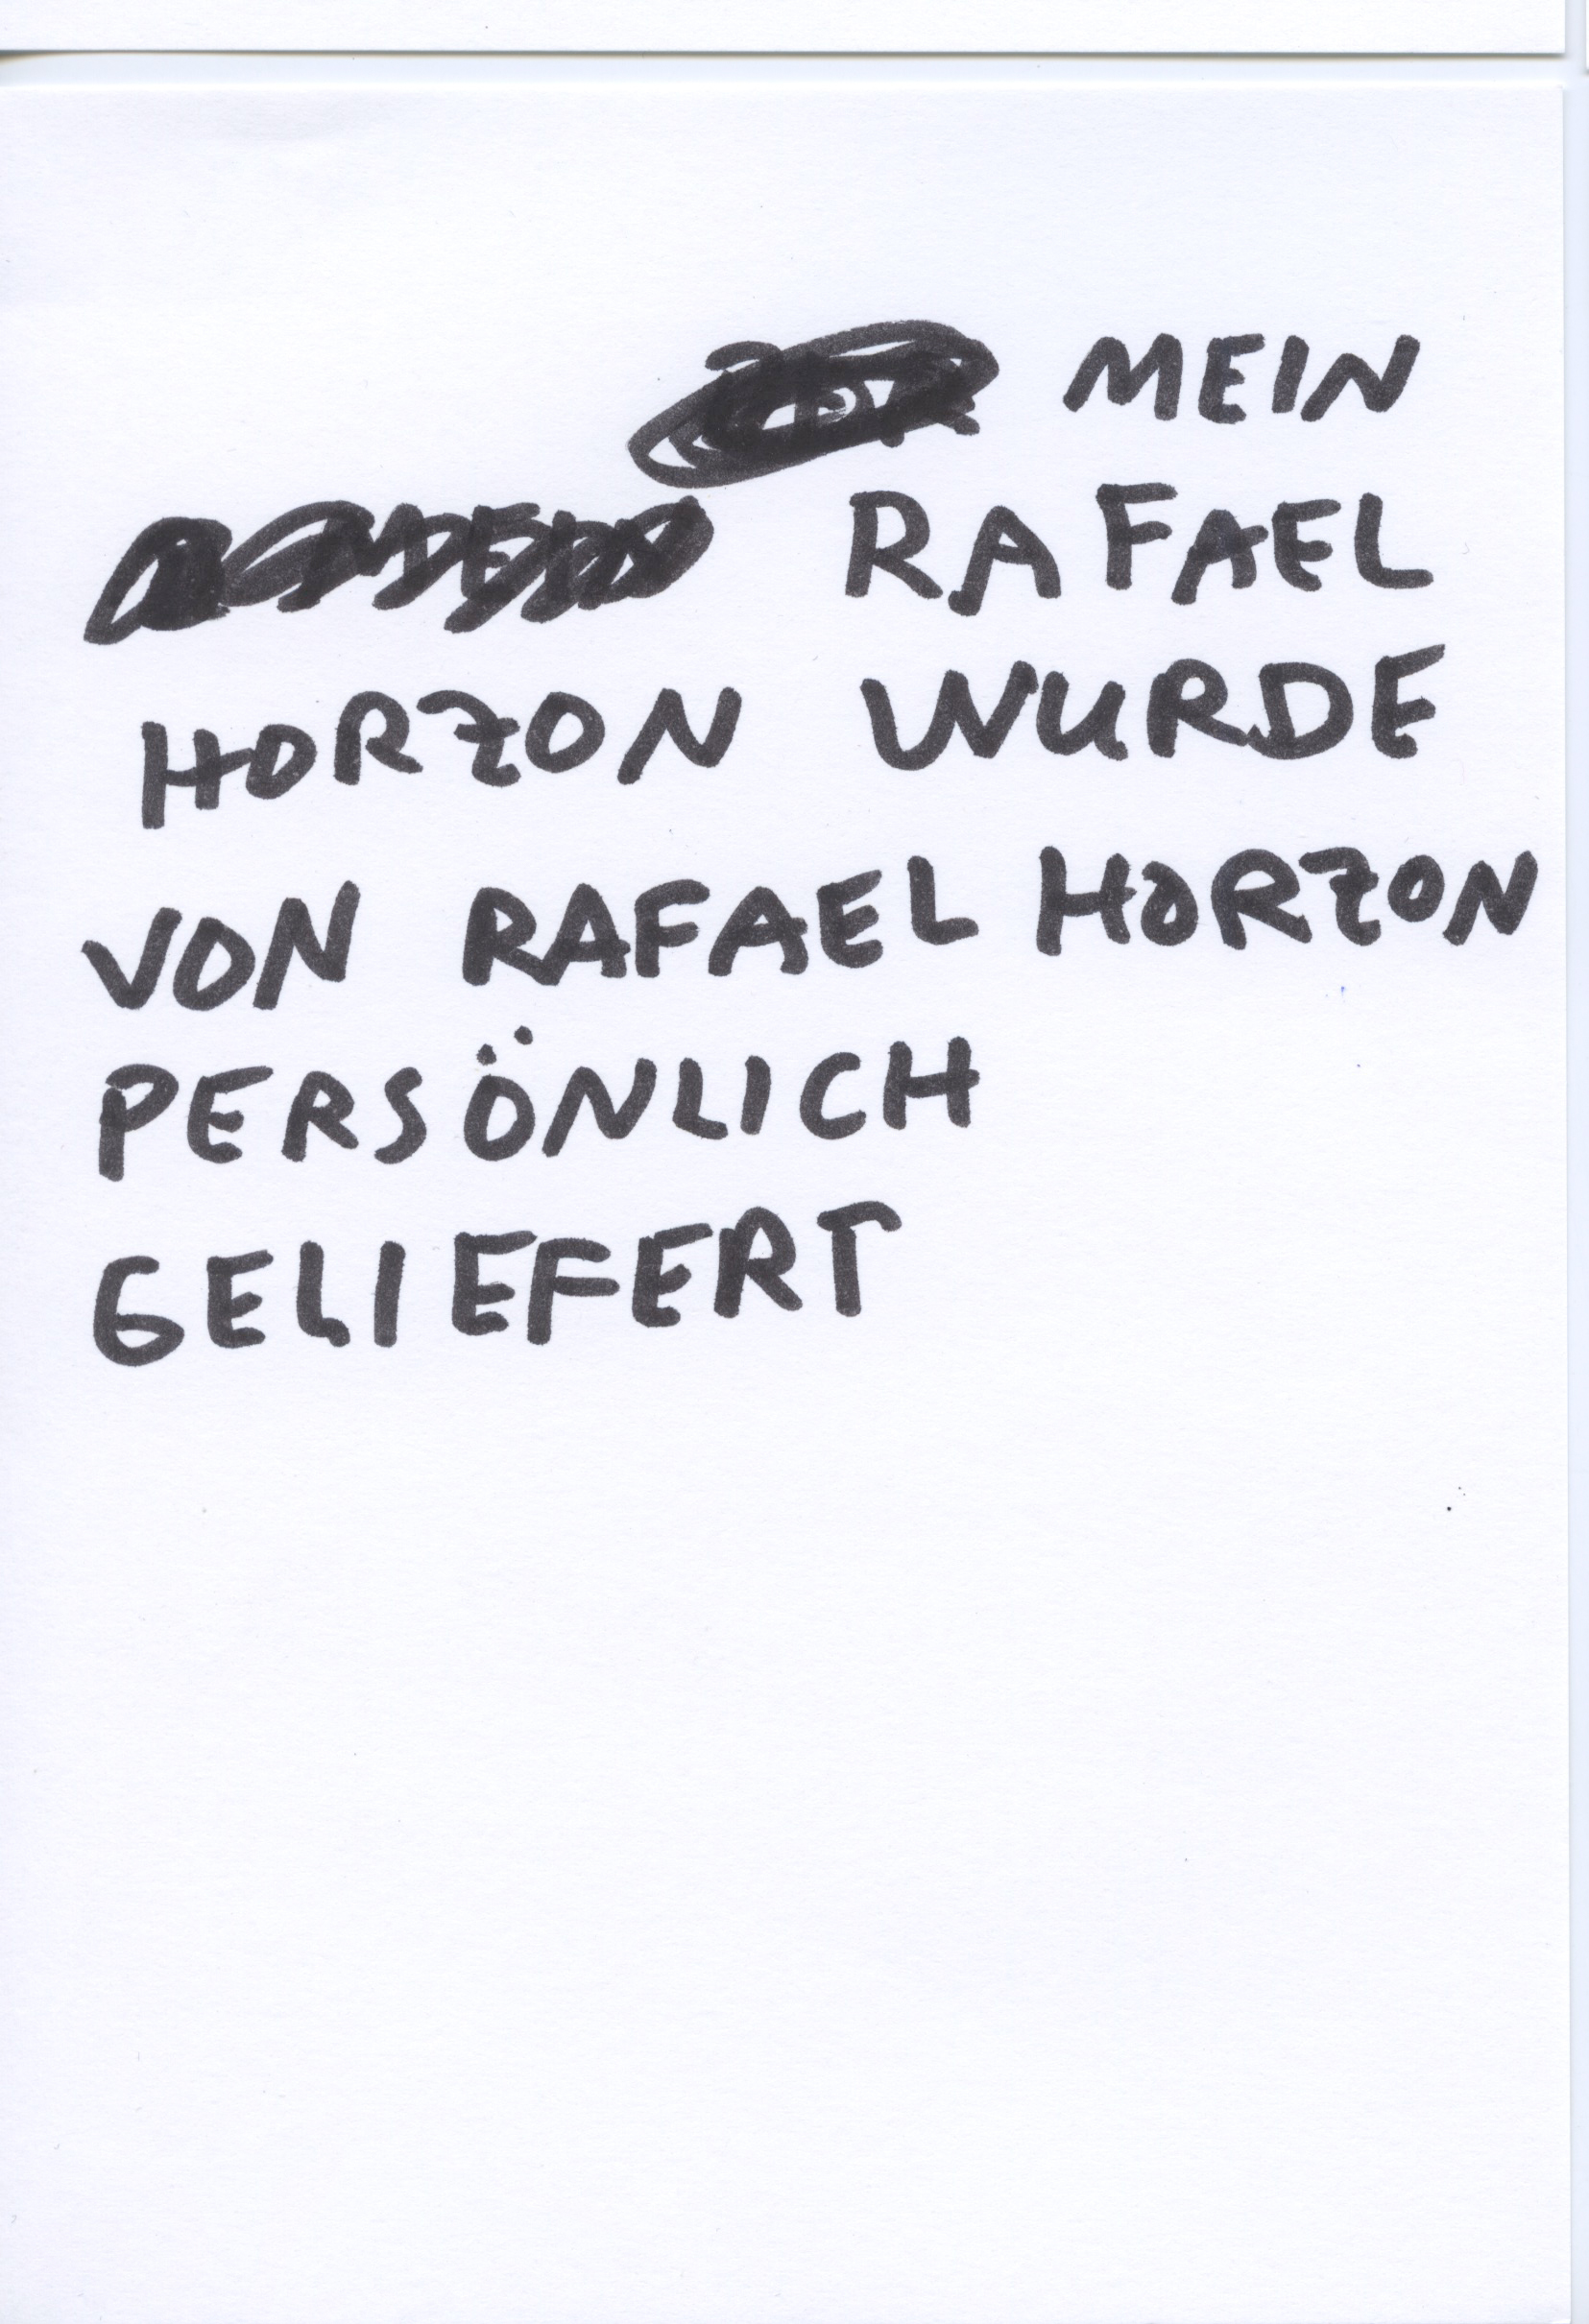 MEIN
RAFAEL
HORZON WURDE
VON RAFAEL HORZON
PERSÖNLICH
GELIEFERT